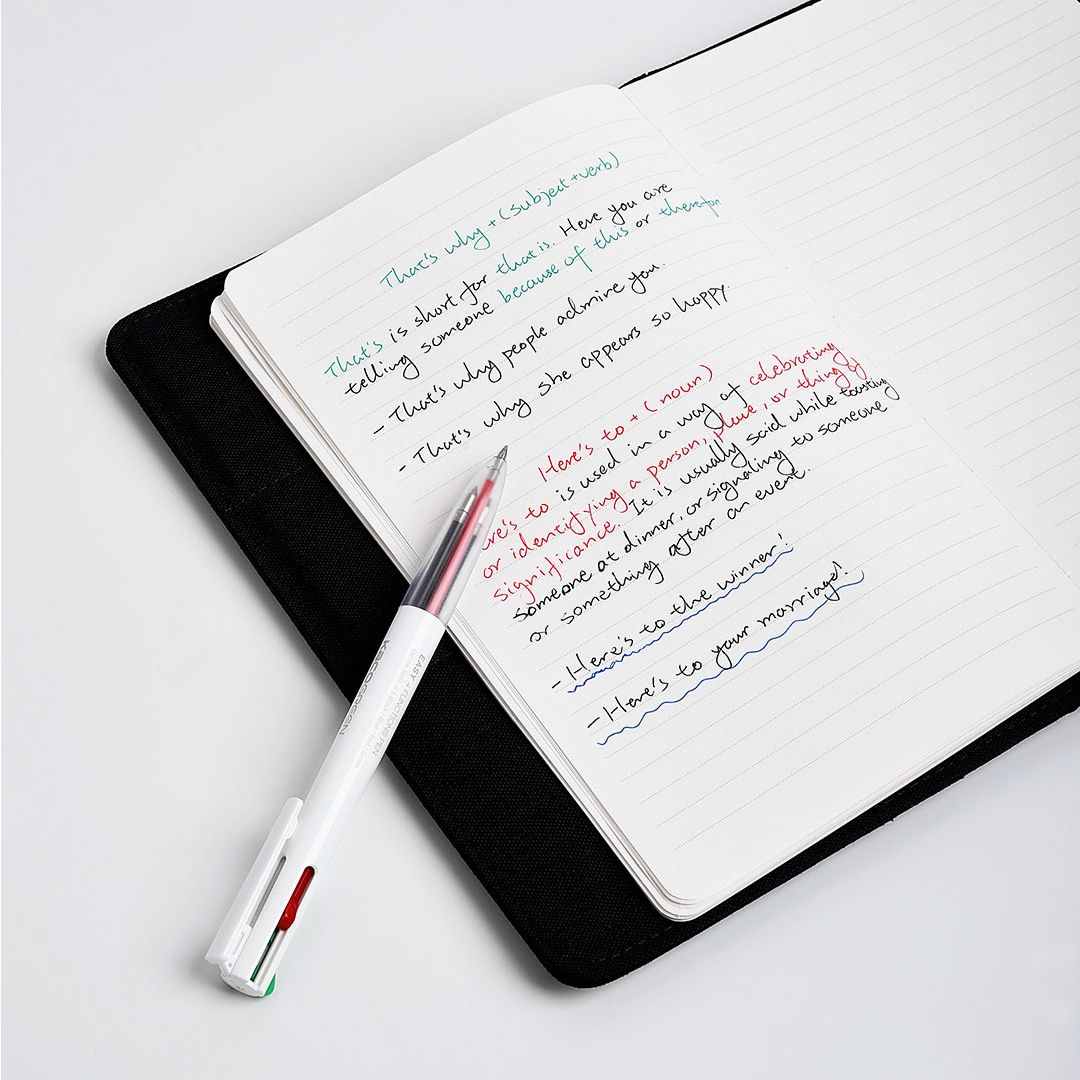 That's why + (subject + verb)
That's is short for that is. Here you are
telling someone because of this or therefore
- That's why people admire you.
- That's why she appears so happy.
Here's to + (noun)
ere's to is used in a way of celebrating
or identifying a person, place, or thing of
significance. It is usually said while toasting
someone at dinner, or signaling to someone
or something after an event.
- Here's to the winner!
- Here's to your marriage!
EASY 4 FUNCTIONS PEN